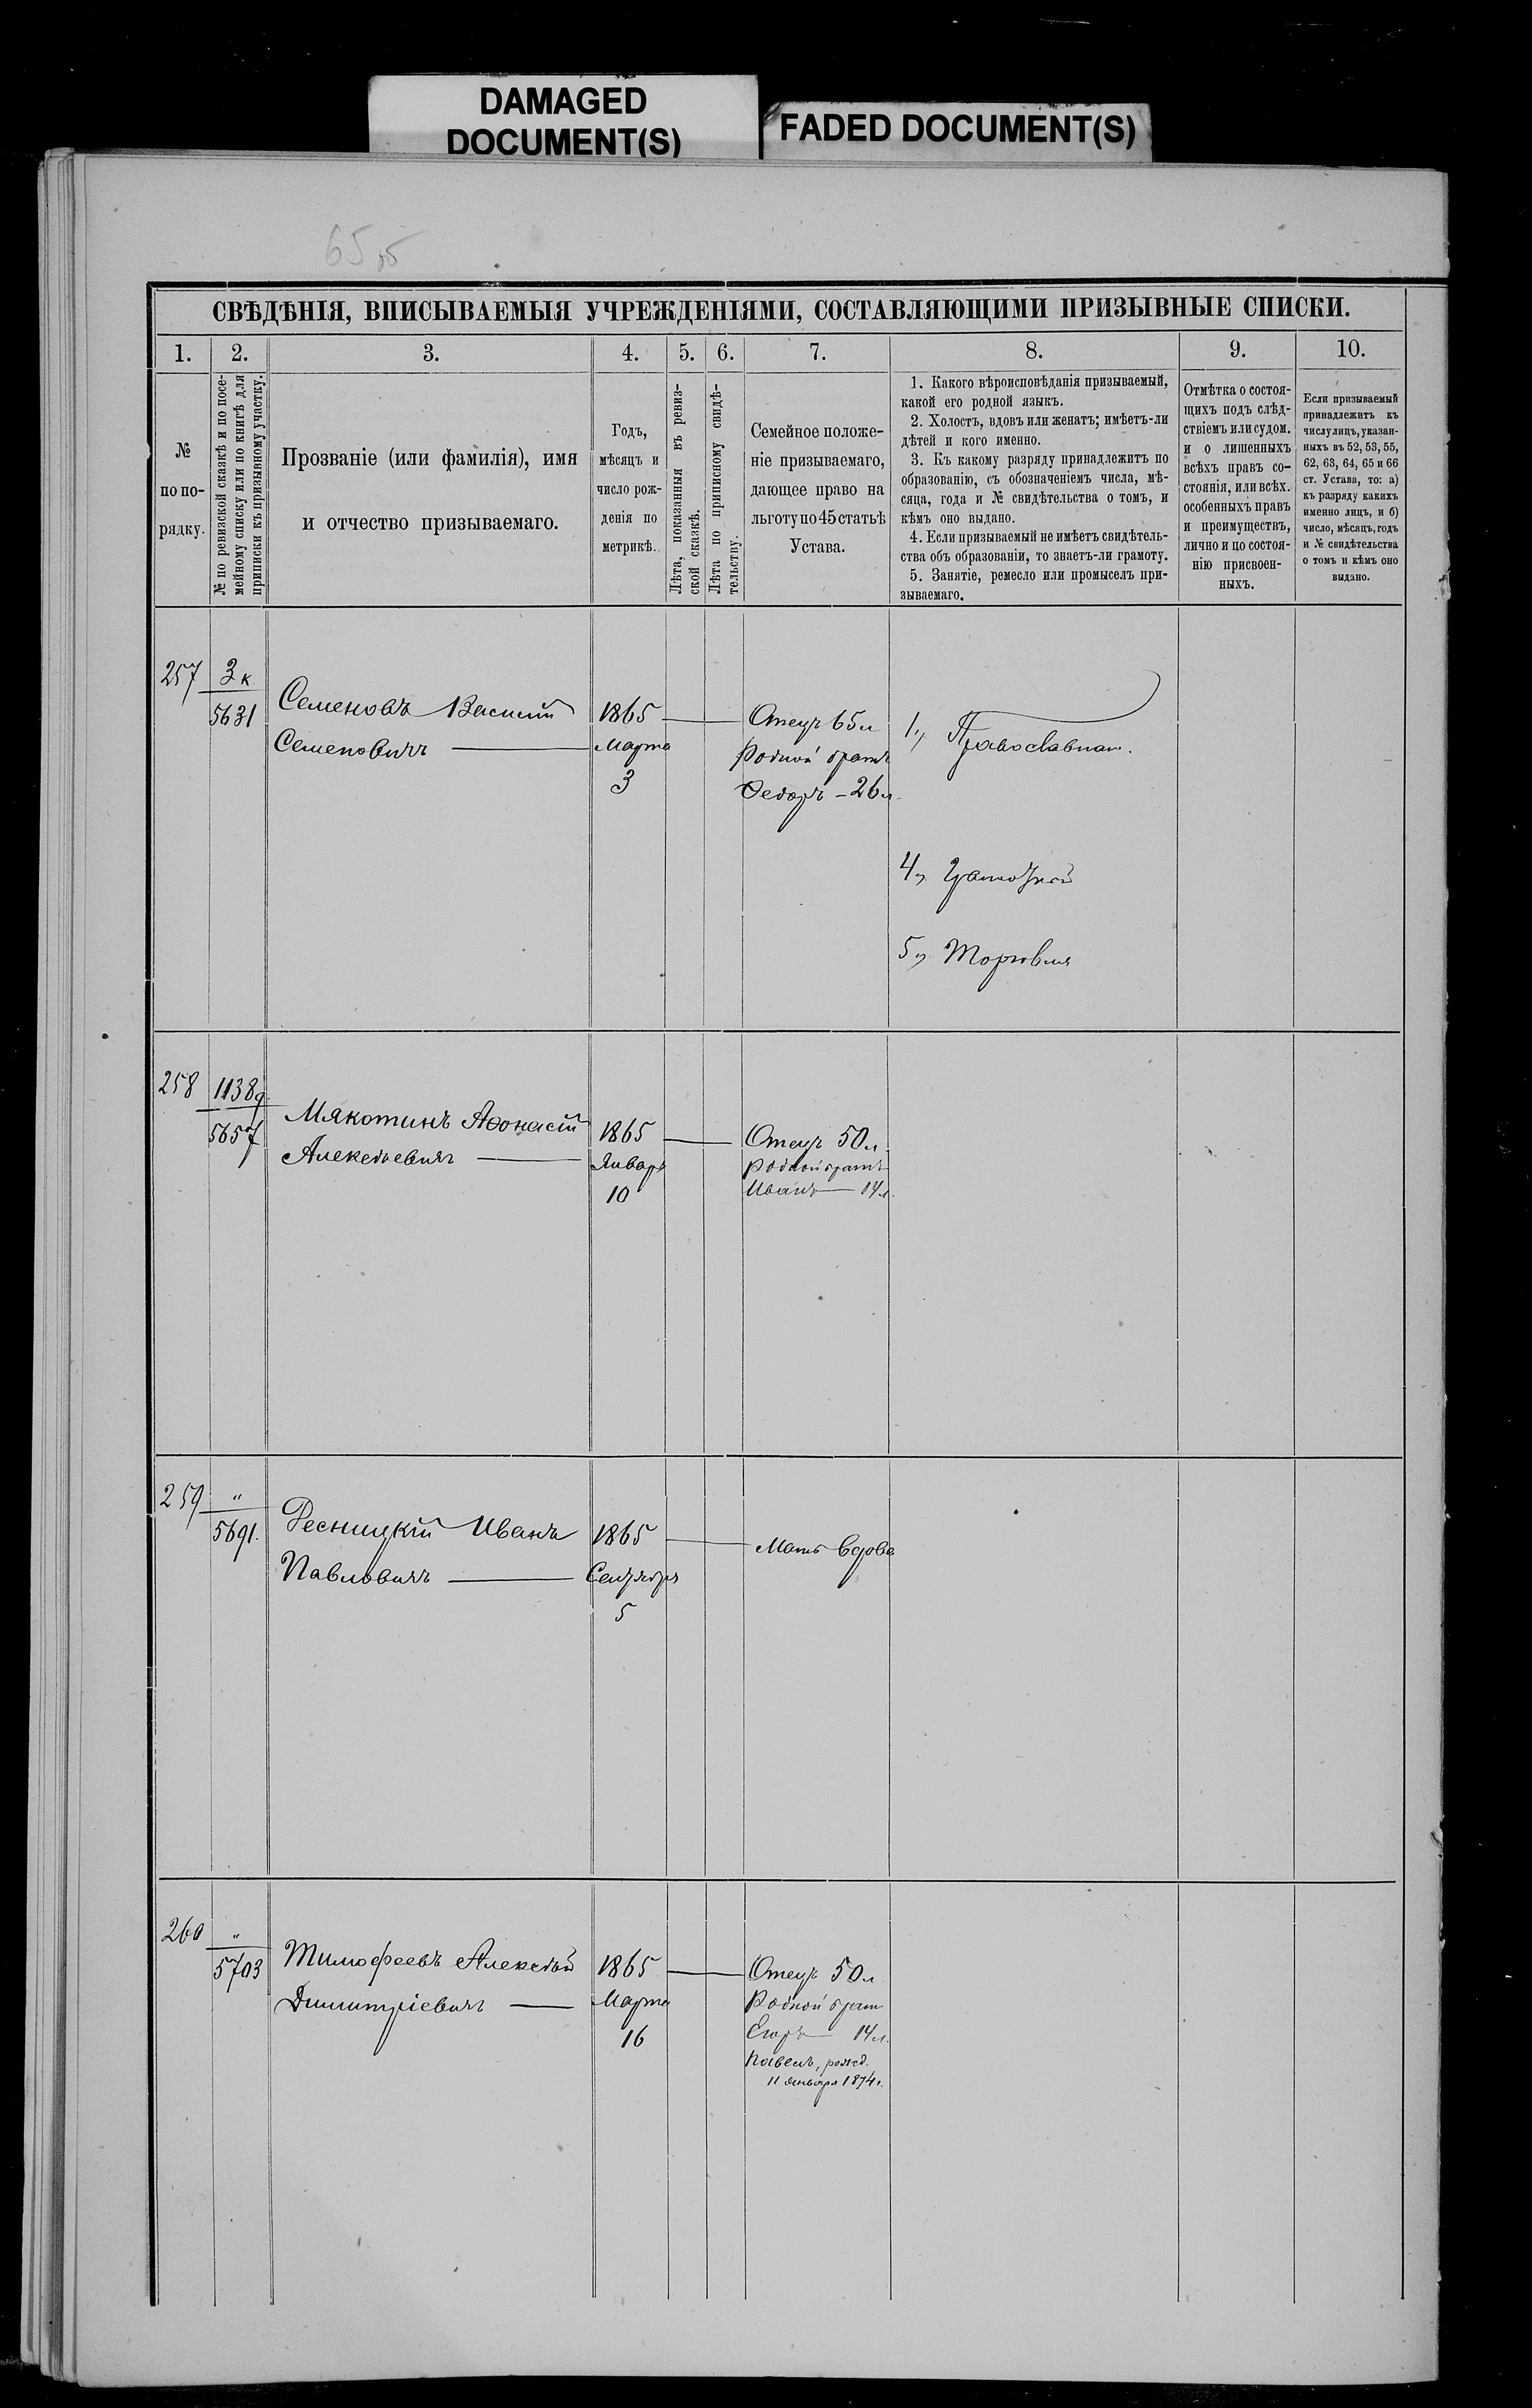 DAMAGED
DOCUMENT(S)
FADED DOCUMENT(S)
СВѢДѢНІЯ, ВПИСЫВАЕМЫЯ УЧРЕЖДЕНІЯМИ, СОСТАВЛЯЮЩИМИ ПРИЗЫВНЫЕ СПИСКИ.
1. 2. 3. 4. 5. 6. 7. 8. 9. 10.
№
по по-
рядку.
№ по ревизской сказкѣ и по посе-
мейному списку или по книгѣ для
приписки къ призывному участку.
Прозваніе (или фамилія), имя
и отчество призываемаго.
Годъ,
мѣсяцъ и
число рож-
денія по
метрикѣ.
Лѣта, показанныя въ ревиз-
ской сказкѣ.
Лѣта по приписному свидѣ-
тельству.
Семейное положе-
ніе призываемаго,
дающее право на
льготу по 45 статьѣ
Устава.
1. Какого вѣроисповѣданія призываемый,
какой его родной языкъ.
2. Холостъ, вдовъ или женатъ; имѣетъ-ли
дѣтей и кого именно.
3. Къ какому разряду принадлежитъ по
образованію, съ обозначеніемъ числа, мѣ-
сяца, года и № свидѣтельства о томъ, и
кѣмъ оно выдано.
4. Если призываемый не имѣетъ свидѣтель-
ства объ образованіи, то знаетъ-ли грамоту.
5. Занятіе, ремесло или промыселъ при-
зываемаго.
Отмѣтка о состоя-
щихъ подъ слѣд-
ствіемъ или судом.
и о лишенныхъ
всѣхъ правъ со-
стоянія, или всѣх.
особенныхъ правъ
и преимуществъ,
лично и по состоя-
нію присвоен-
ныхъ.
Если призываемый
принадлежитъ къ
числу лицъ, указан-
ныхъ въ 52, 53, 55,
62, 63, 64, 65 и 66
ст. Устава, то: а)
къ разряду какихъ
именно лицъ, и б)
число, мѣсяцъ, годъ
и № свидѣтельства
о томъ и кѣмъ оно
выдано.
257
3к
5631
Семеновъ Василій
Семеновичъ
1865
Марта
3
Отецъ 65 л
Родной братъ
Федоръ - 26 л.
1, Православнаго.
4, Грамотный
5, Торговля
258
11389
5657
Мякотинъ Афонасій
Алексѣевичъ
1865
Январь
10
Отецъ 50 л.
Родной братъ
Иванъ 14 л.
259
"
5691.
Иванъ
Павловичъ
1865
Сентября
5
Мать вдова
260
"
5703
Тимофеевъ Алексѣй
Димитріевичъ
1865
Марта
16
Отецъ 50 л
Родной брат
Егоръ 14 л.
Павелъ, рожд.
11 января 1874 г.